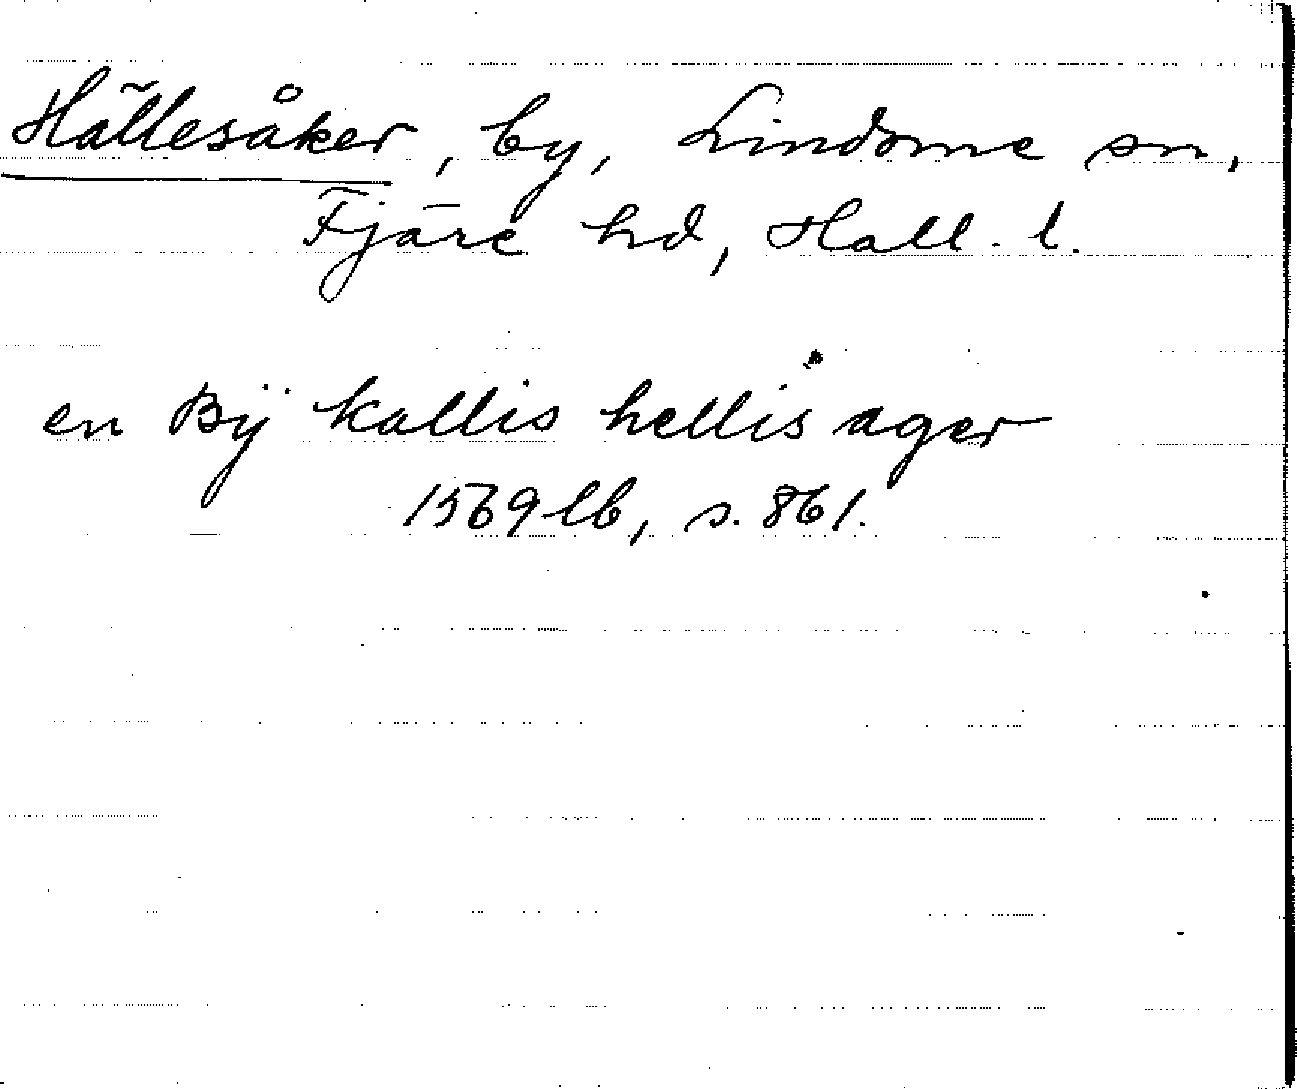 Hällesåker, by, Lindome sn,
Fjäre hd, Hall. l.
en Bÿ kallis hellis ager
1569 lb, s. 861.